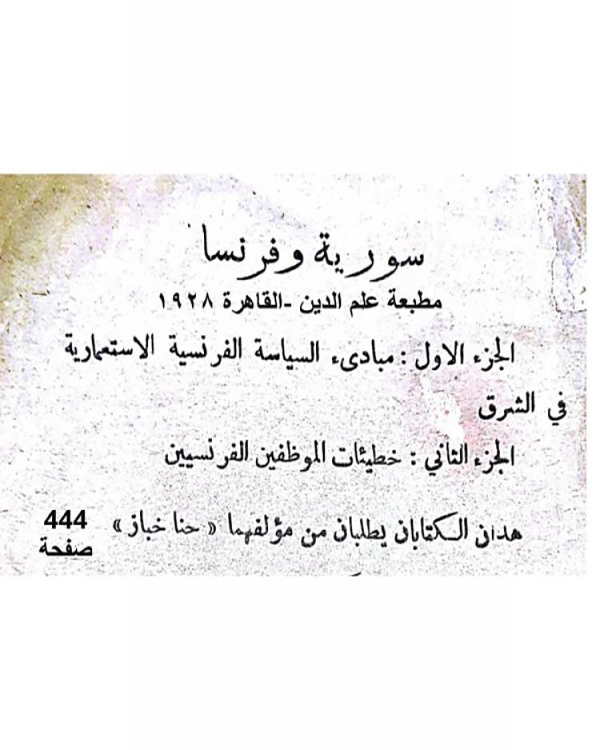 سورية وفرنسا
مطبعة علم الدين -القاهرة ١٩٢٨
الجزء الاول : مبادىء السياسة الفرنسية الاستعمارية
في الشرق
الجزء الثاني : خطيئات الموظفين الفرنسيين
هذان الكتابان يطلبان من مؤلفهما « حنا خباز »
444
صفحة